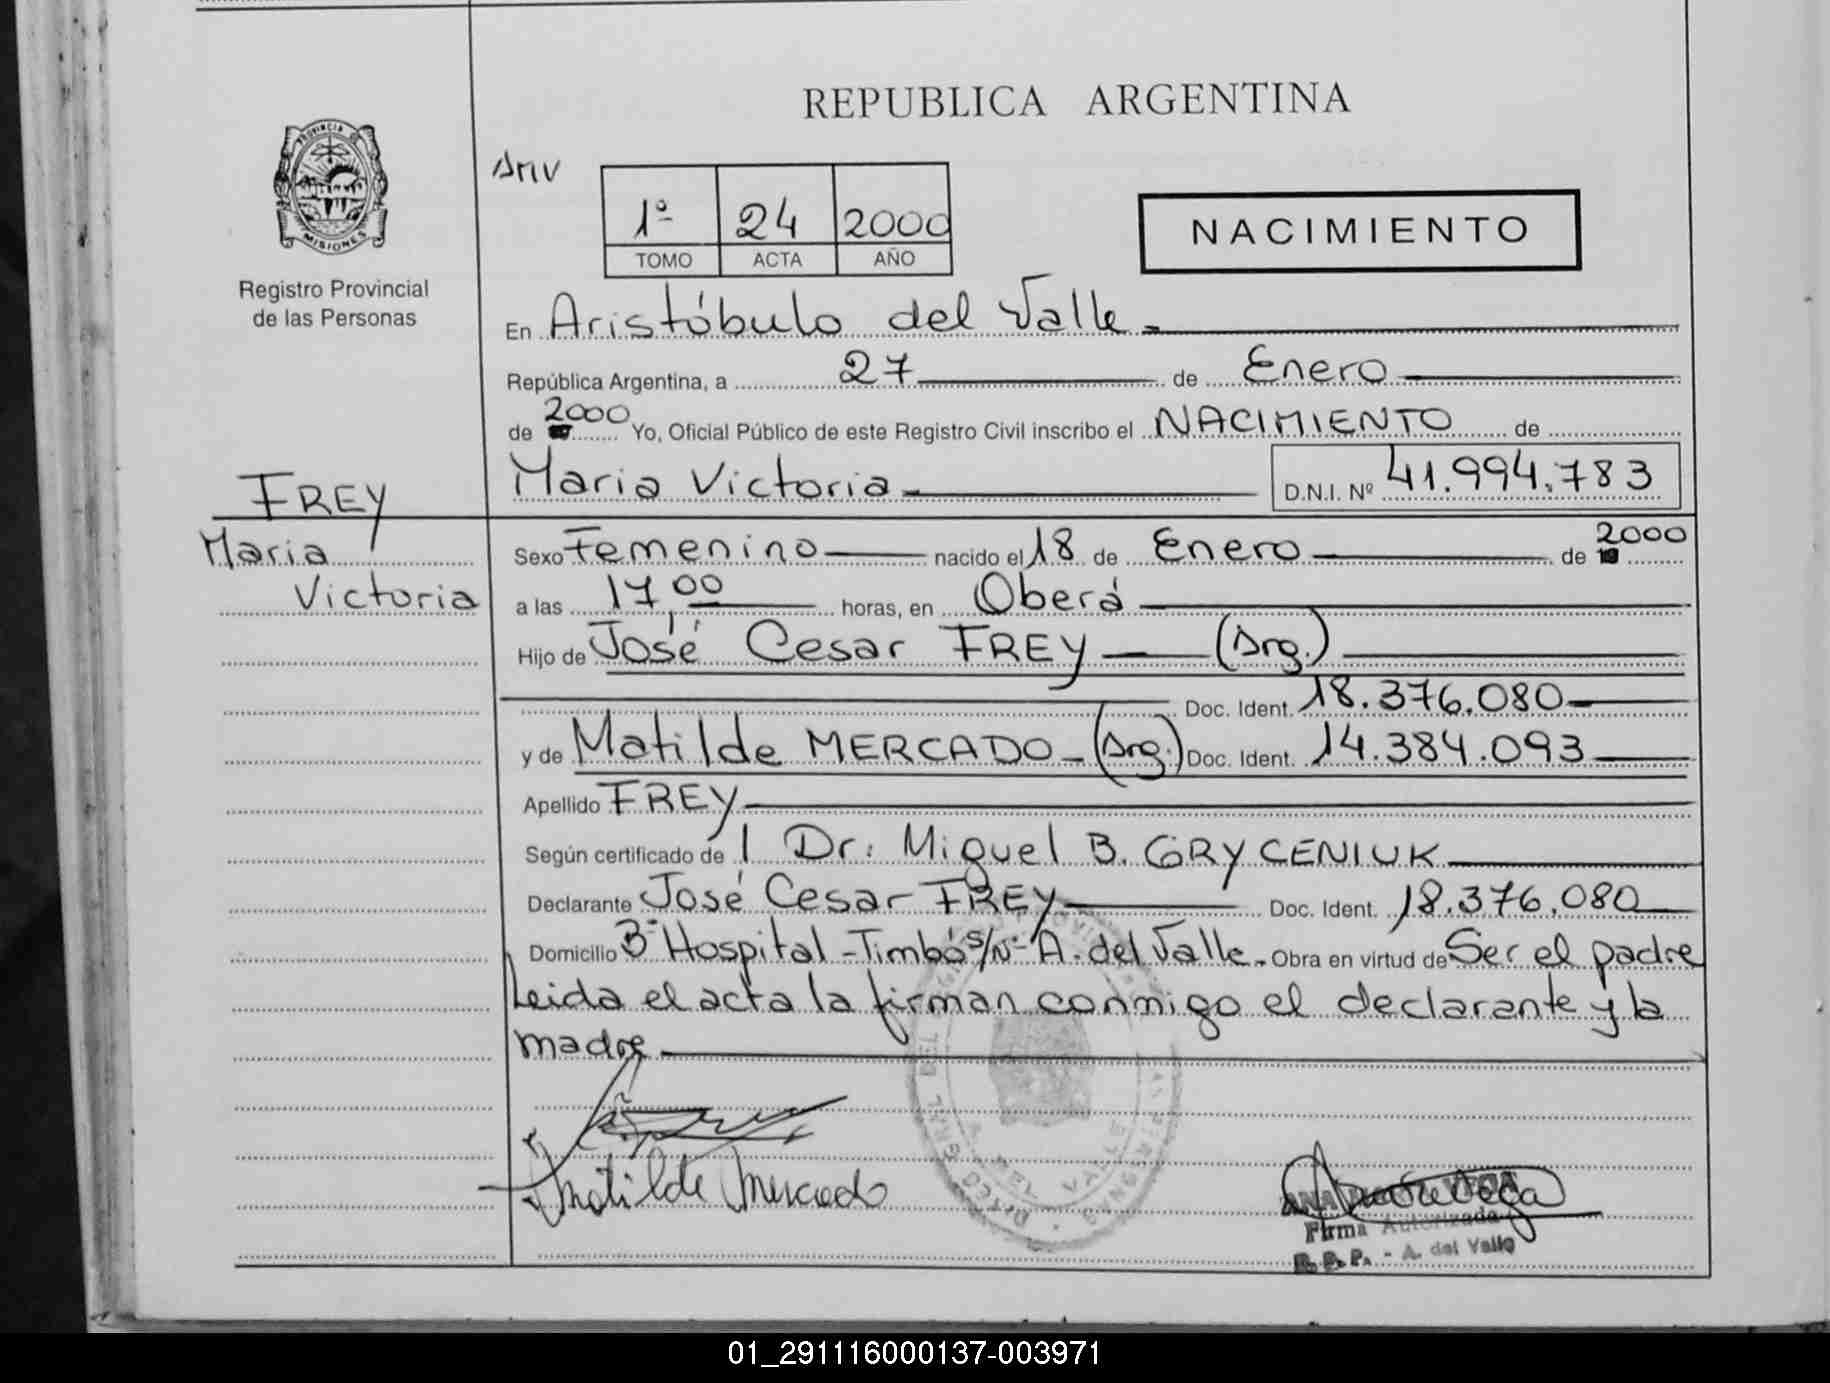 REPUBLICA ARGENTINA
PROVINCIA DE
MISIONES
Registro Provincial
de las Personas
AMV
1º 24 2000
TOMO ACTA AÑO
NACIMIENTO
En Aristóbulo del Valle
República Argentina, a 27 de Enero
de 2000 Yo, Oficial Público de este Registro Civil inscribo el NACIMIENTO de
Maria Victoria D.N.I. Nº 41.994.783
FREY
Maria
Victoria
Sexo Femenino nacido el 18 de Enero de 2000
a las 17,00 horas, en Oberá
Hijo de José Cesar FREY (Arg.)
Doc. Ident. 18.376.080
y de Matilde MERCADO (Arg.) Doc. Ident. 14.384.093
Apellido FREY
Según certificado de l Dr. Miguel B. GRYCENIUK
Declarante José Cesar FREY Doc. Ident. 18.376.080
Domicilio Bº Hospital - Timbó s/Nº A. del Valle. Obra en virtud de Ser el padre
Leida el acta la firman conmigo el declarante y la
madre
Matilde Mercado
Firma Autorizada
R.P.P. - A. del Valle
01_291116000137-003971